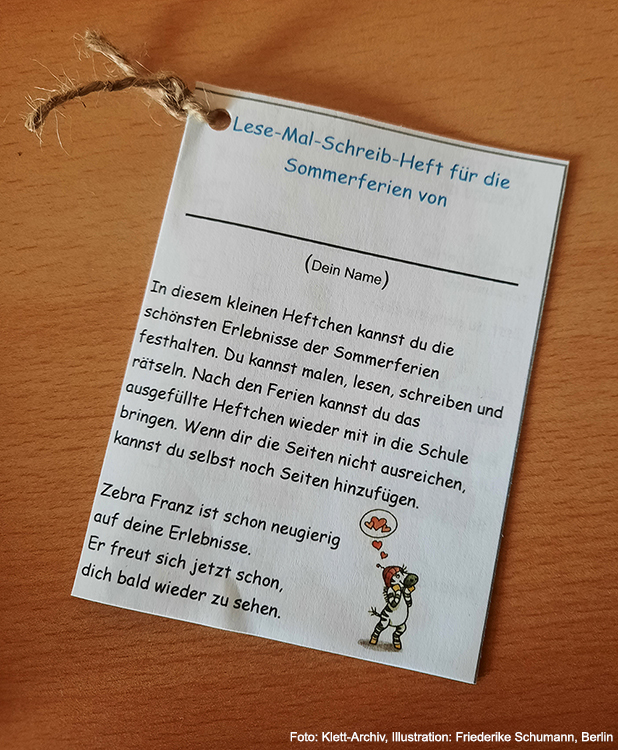 Lese-Mal-Schreib-Heft für die
Sommerferien von
(Dein Name)
In diesem kleinen Heftchen kannst du die
schönsten Erlebnisse der Sommerferien
festhalten. Du kannst malen, lesen, schreiben und
rätseln. Nach den Ferien kannst du das
ausgefüllte Heftchen wieder mit in die Schule
bringen. Wenn dir die Seiten nicht ausreichen,
kannst du selbst noch Seiten hinzufügen.
Zebra Franz ist schon neugierig
auf deine Erlebnisse.
Er freut sich jetzt schon,
dich bald wieder zu sehen.
Foto: Klett-Archiv, Illustration: Friederike Schumann, Berlin